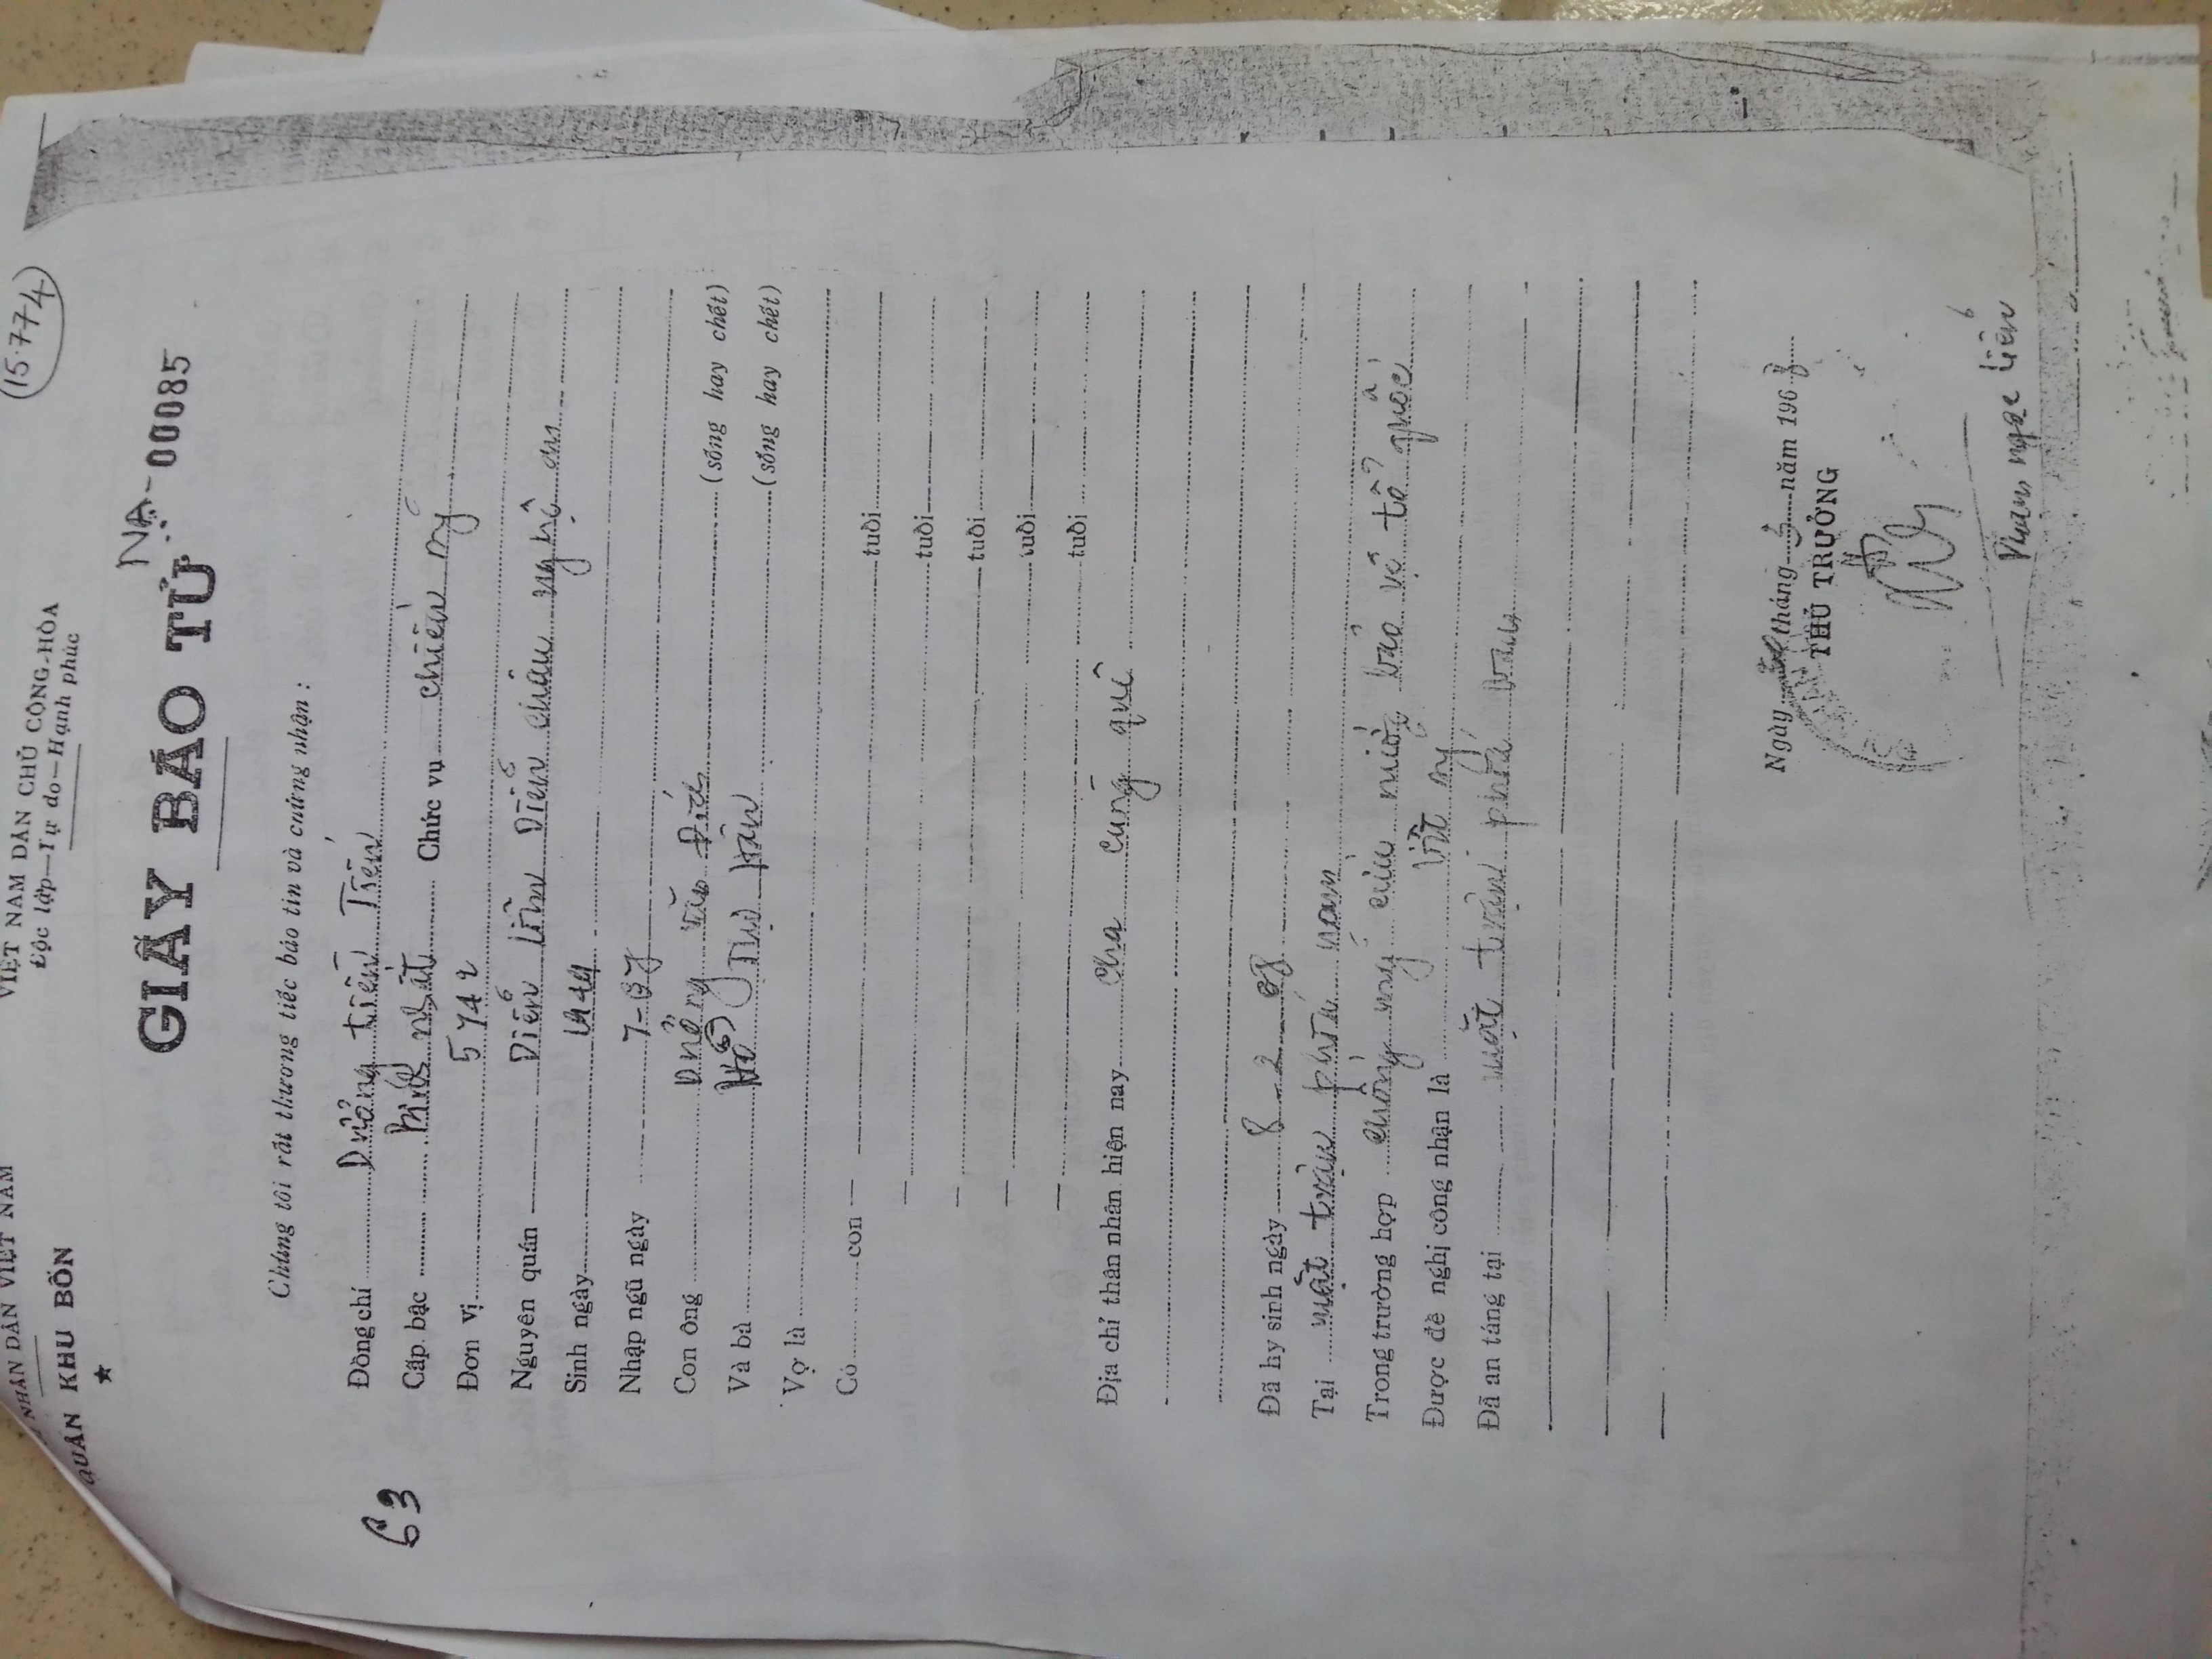 NHÂN DÂN VIỆT NAM
QUÂN KHU BỐN
VIỆT NAM DÂN CHỦ CỘNG-HÒA
Độc lập—Tự do—Hạnh phúc
15.774
GIẤY BÁO TỬ
NA-00085
Chúng tôi rất thương tiếc báo tin và chứng nhận :
63
Đồng chí tiến Tiến
Cấp bậc nhất Chức vụ chiến sỹ
Đơn vị 5742
Nguyên quán Diễn Diễn châu nghệ an
Sinh ngày 1944
Nhập ngũ ngày
Con ông văn (sống hay chết)
Và bà Thị (sống hay chết)
Vợ là
Có con — tuổi
— tuổi
— tuổi
— tuổi
— tuổi
Địa chỉ thân nhân hiện nay cha cùng quê
Đã hy sinh ngày 8 2 68
Tại mặt trận phía nam
Trong trường hợp chống mỹ cứu bảo vệ tổ quốc
Được đề nghị công nhận là liệt sỹ
Đã an táng tại mặt trận phía nam
Ngày tháng năm 196
THỦ TRƯỞNG
ngọc